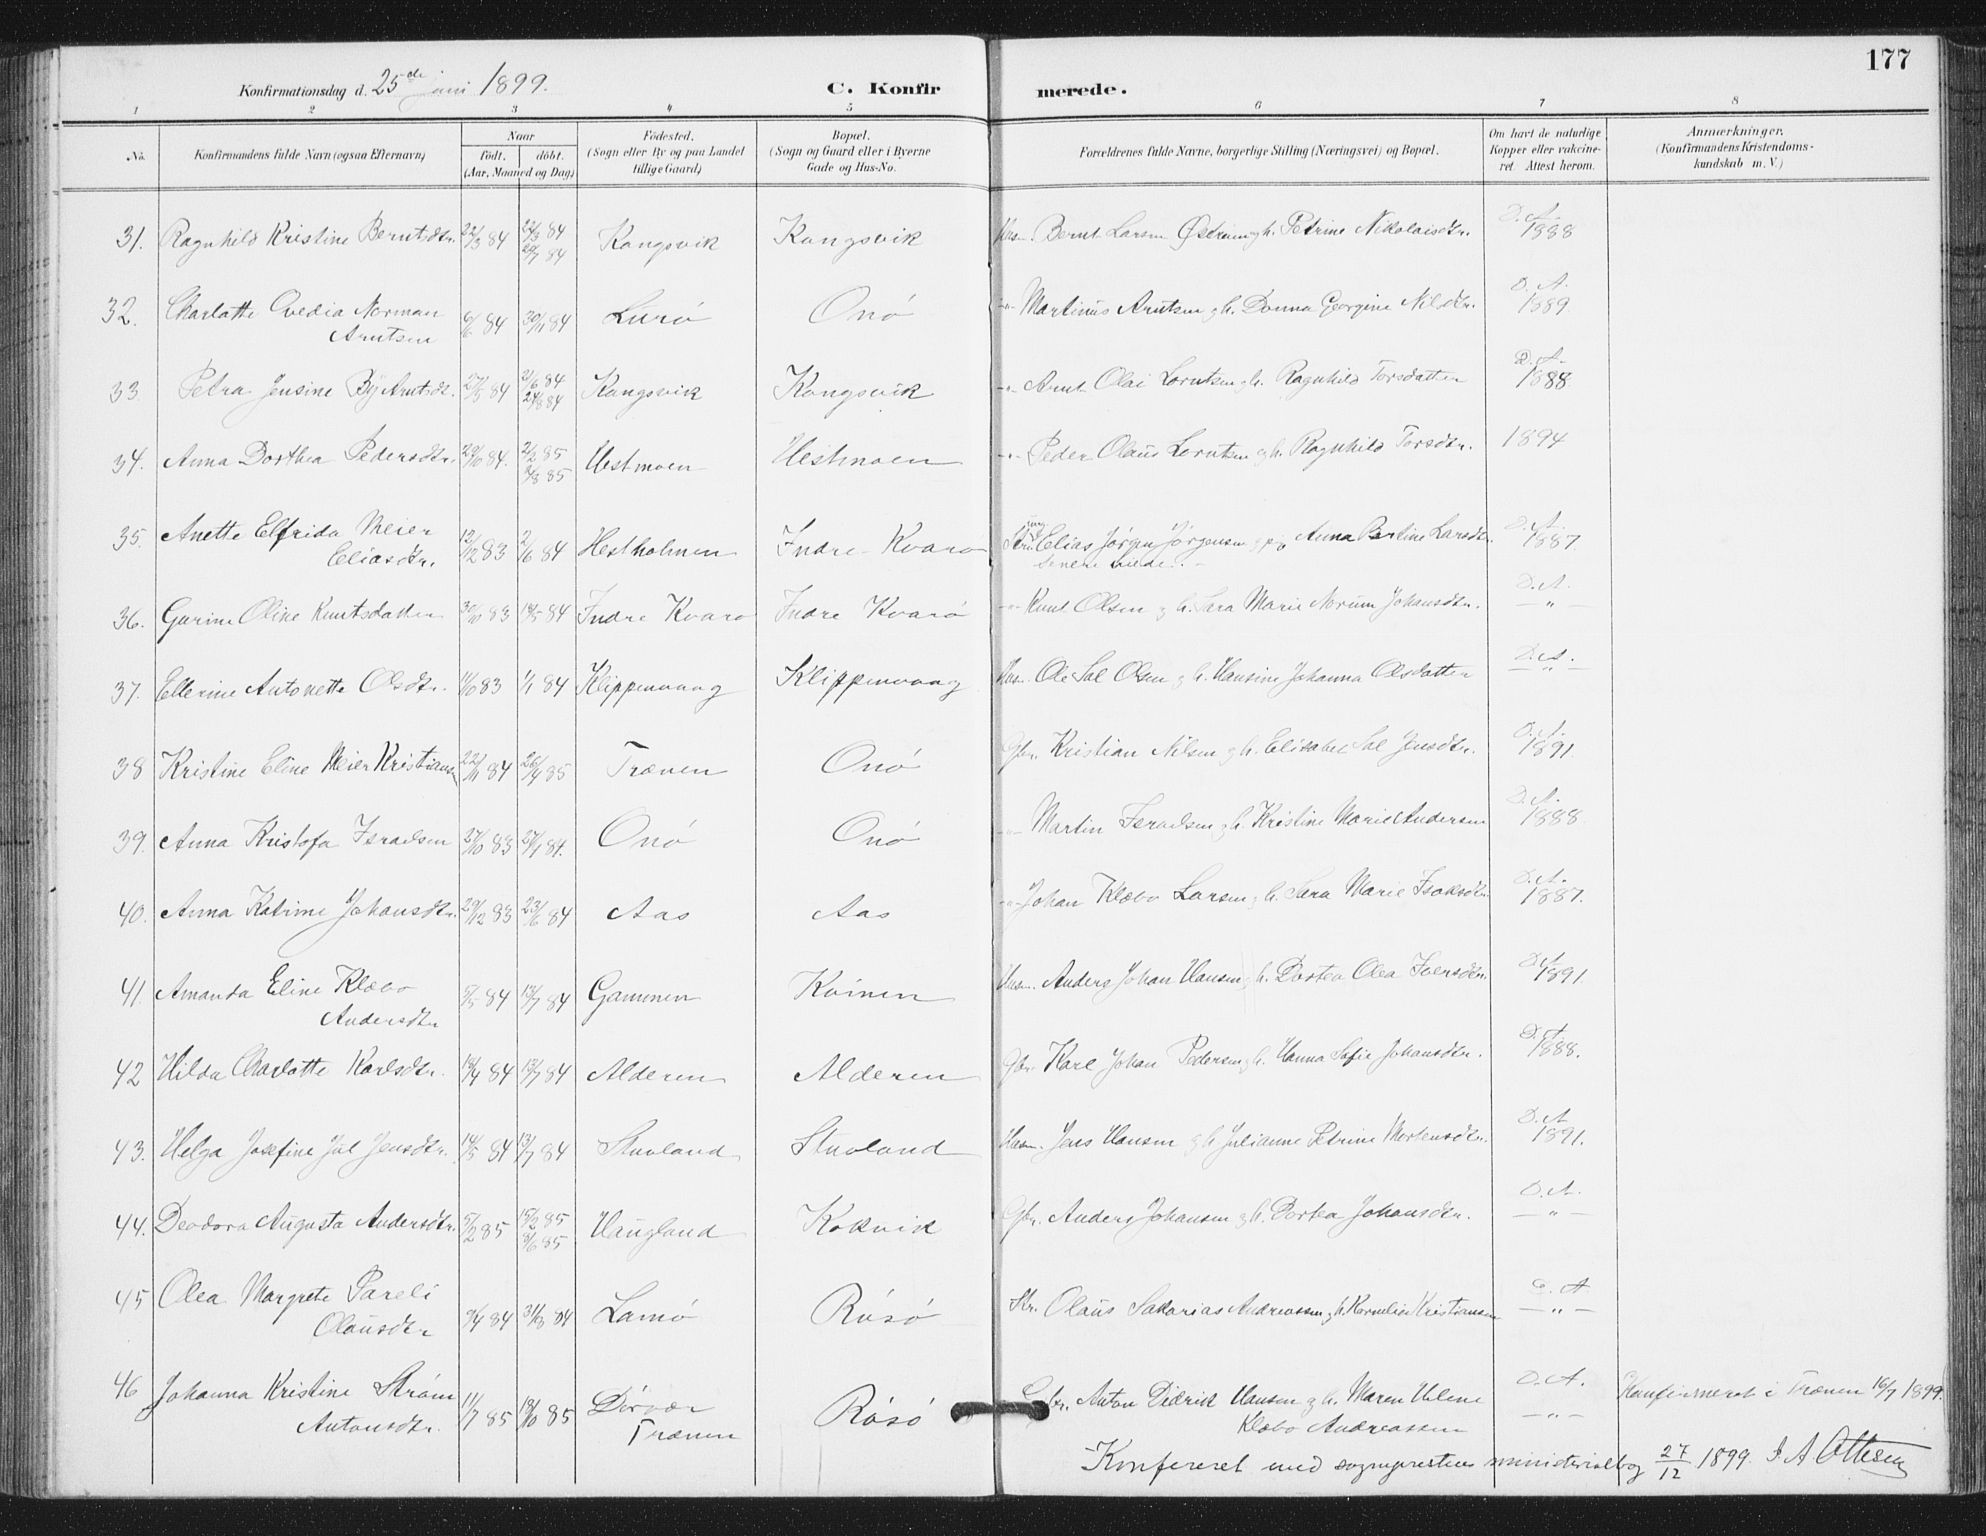 177
Konfirmationsdag d. 25de juni 1899.
C. Konfirmerede.
1 2 3 4 5 6 7 8
No. Konfirmandens fulde Navn (ogsaa Efternavn) Naar födt. döbt. (Aar, Maaned og Dag) Födested. (Sogn eller By og paa Landet tillige Gaard) Bopæl. (Sogn og Gaard eller i Byerne Gade og Hus-No. Forældrenes fulde Navne, borgerlige Stilling (Næringsvei) og Bopæl. Om havt de naturlige Kopper eller vakcineret. Attest herom. Anmærkninger. (Konfirmandens Kristendomskundskab m. V.)
31. Ragnhild Kristine Berntsdtr. 22/3 84 22/3 84 20/7 84 Kongsvik Kongsvik Husm. Bernt Larsen g h. Petrine Nikolaisdtr. D.A. 1888
32. Charlotte Ovedia Norman Arntsen 6/6 84 30/11 84 Lurö Onö -"- Martinus Arntsen g h. Donna Georgine Nilsdtr. D.A. 1889.
33. Petra Jensine By Arntsdt. 27/5 84 2/6 84 24/8 84 Kongsvik Kongsvik -"- Arnt Olai Lorntsen g h. Ragnhild Torsdatter D.A. 1888
34. Anna Dorthea Pedersdtr. 29/10 84. 2/2 85 2/8 85 Hestmoen Hestmoen -"- Peder Olaus Lorntsen g h. Ragnhild Torsdtr. 1894
35. Anette Elfrida Meier Eliasdtr. 12/12 83 2/6 84 Hestholmen Indre Kvarö Elias Jørgen Jørgensen g pig Anna Bertine Larsdtr. senere viede. D.A. 1887
36. Gurine Oline Knutsdatter 30/10 83 18/5 84 Indre Kvarö Indre Kvarö -"- Knut Olsen g h. Sara Marie Norum Johansdtr. D.A. -"-
37. Ellerine Antonette Olsdtr. 11/10 83 1/1 84 Klippenvaag Klippenvaag Husm. Ole Sal Olsen g h. Hansine Johanna Olsdatter D.A. -"-
38 Kristine Eline Meier Kristiansen 22/11 84 26/4 85 Trænen Onö Gbr. Kristian Nilsen g h. Elisabet Sal Jensdtr. D.A. 1891.
39. Anna Kristofa Israelsen 27/10 83 27/1 84. Onö Onö -"- Martin Israelsen g h. Kristine Marie Andersen D.A. 1888.
40. Anna Katrine Johansdtr. 29/12 83 23/6 84 Aas Aas -"- Johan Klæbo Larsen g h. Sara Marie Isaksdtr D.A. 1887.
41. Amanda Eline Klæbo Andersdtr 5/5 84 13/7 84 Gammen Kvinen Husm. Anders Johan Hansen g h. Dortea Olea Iversdtr. D.A. 1891.
42 Hilda Charlotte Karlsdtr. 18/4 84 13/7 84 Alderen Alderen Gbr. Karl Johan Pedersen g h. Hanna Sofie Johansdtr. D.A. 1888.
43. Helga Josefine Jul Jensdtr. 14/5 84 13/7 84 Stuvland Stuvland Husm. Jens Hansen g h Julianne Petrine Mortensdtr. D.A. 1891.
44. Deodora Augusta Andersdtr. 5/2 85 15/2 85 8/6 85 Haugland Kokvik Gbr. Anders Johansen g h. Dortea Johansdtr. D.A. -"-
45 Olea Margrete Pareli Olausdtr 9/4 84 31/8 84 Lamö Rösö Str. Olaus Sakarias Andreassen g h. Kornelia Kristiansen D.A. -"-
46 Johanna Kristine Ström Antonsdtr. 11/7 85 18/10 85 Dörvær Trænen Rösö Gbr. Anton Didrik Hansen g h. Maren Helene Klæbo Andreassen D.A. -"- Konfirmeret i Trænen 16/7 1899.
Konfereret med sogneprestens ministerialbog 27/12 1899. I. A Ottesen